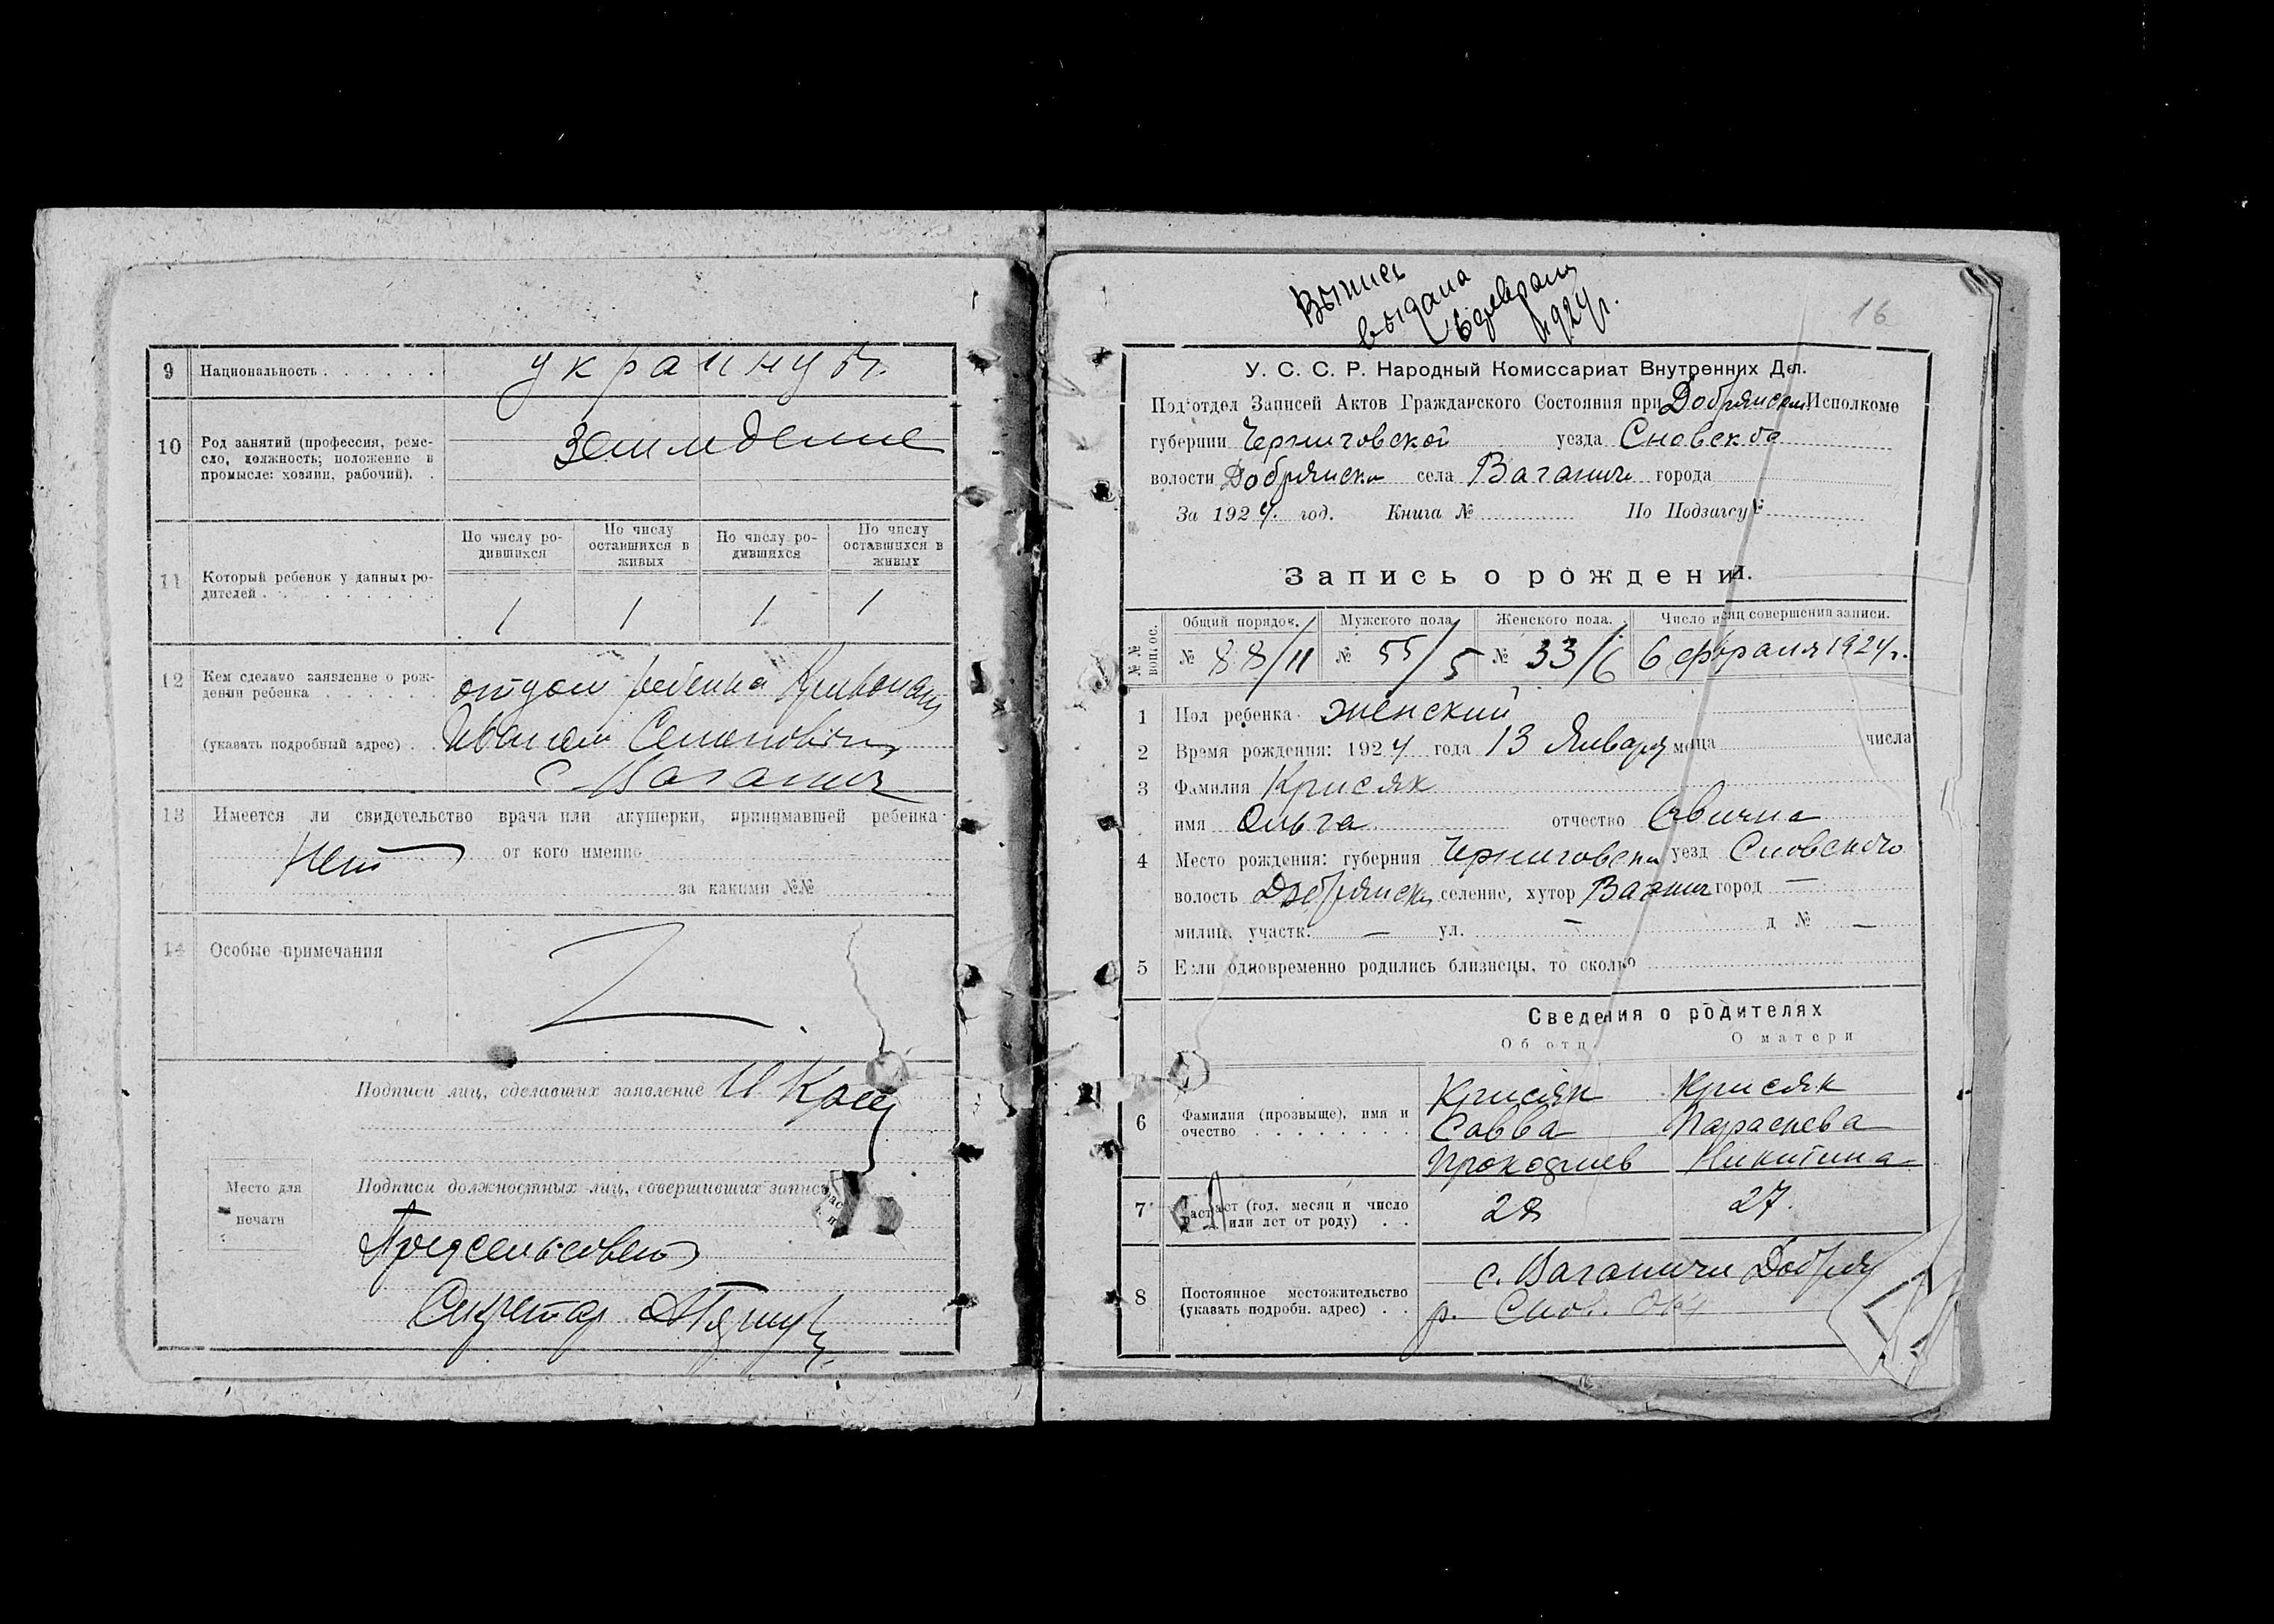 9 Национальность украинцы
10 Род занятий (профессия, реме-
сло, должность; положение в
промысле: хозяин, рабочий).
Земледелие
По числу ро-
дившихся
По числу
оставшихся в
живых
По числу ро-
дившихся
По числу
оставшихся в
живых
11 Который ребенок у данных ро-
дителей
1 1 1 1
12 Кем сделано заявление о рож-
дении ребенка отцом ребенка
(указать подробный адрес) Иваном Семеновичем
с. Ваганич
13 Имеется ли свидетельство врача или акушерки, принимавшей ребенка
Нет от кого именно
за какими №№
14 Особые примечания
Подписи лиц, сделавших заявление И
Место для
печати
Подписи должностных лиц, совершивших запись
Предсельсовета
Секретар
Выпись
выдана
6 февраля
1924 г.
16
У. С. С. Р. Народный Комиссариат Внутренних Дел.
Под'отдел Записей Актов Гражданского Состояния при Добрянском Исполкоме
губернии Черниговской уезда Сновского
волости Добрянской села Ваганичи города
За 1924 год. Книга № По Подзагсу №
Запись о рождении.
№№ вопрос. Общий порядок. Мужского пола. Женского пола. Число и сяц совершения записи.
№ 88/11 № 55/5 № 33/6 6 февраля 1924 г.
1 Пол ребенка женский
2 Время рождения: 1924 года 13 Января м-ца числа
3 Фамилия Крисяк
имя Ольга отчество Савична
4 Место рождения: губерния Черниговской уезд Сновского
волость Добрянской селение, хутор Ваганич город —
милиц. участк. — ул. — д № —
5 Если одновременно родились близнецы, то сколько
Сведения о родителях
Об отц О матери
6 Фамилия (прозвыще), имя и
очество
Крисяк Крисяк
Савва Параскева
Прокофиев Никитина
7 Возраст (год, месяц и число
или лет от роду)
28 27.
8 Постоянное местожительство
(указать подробн. адрес)
с. Ваганичи Добрян
р. Снов. Окр